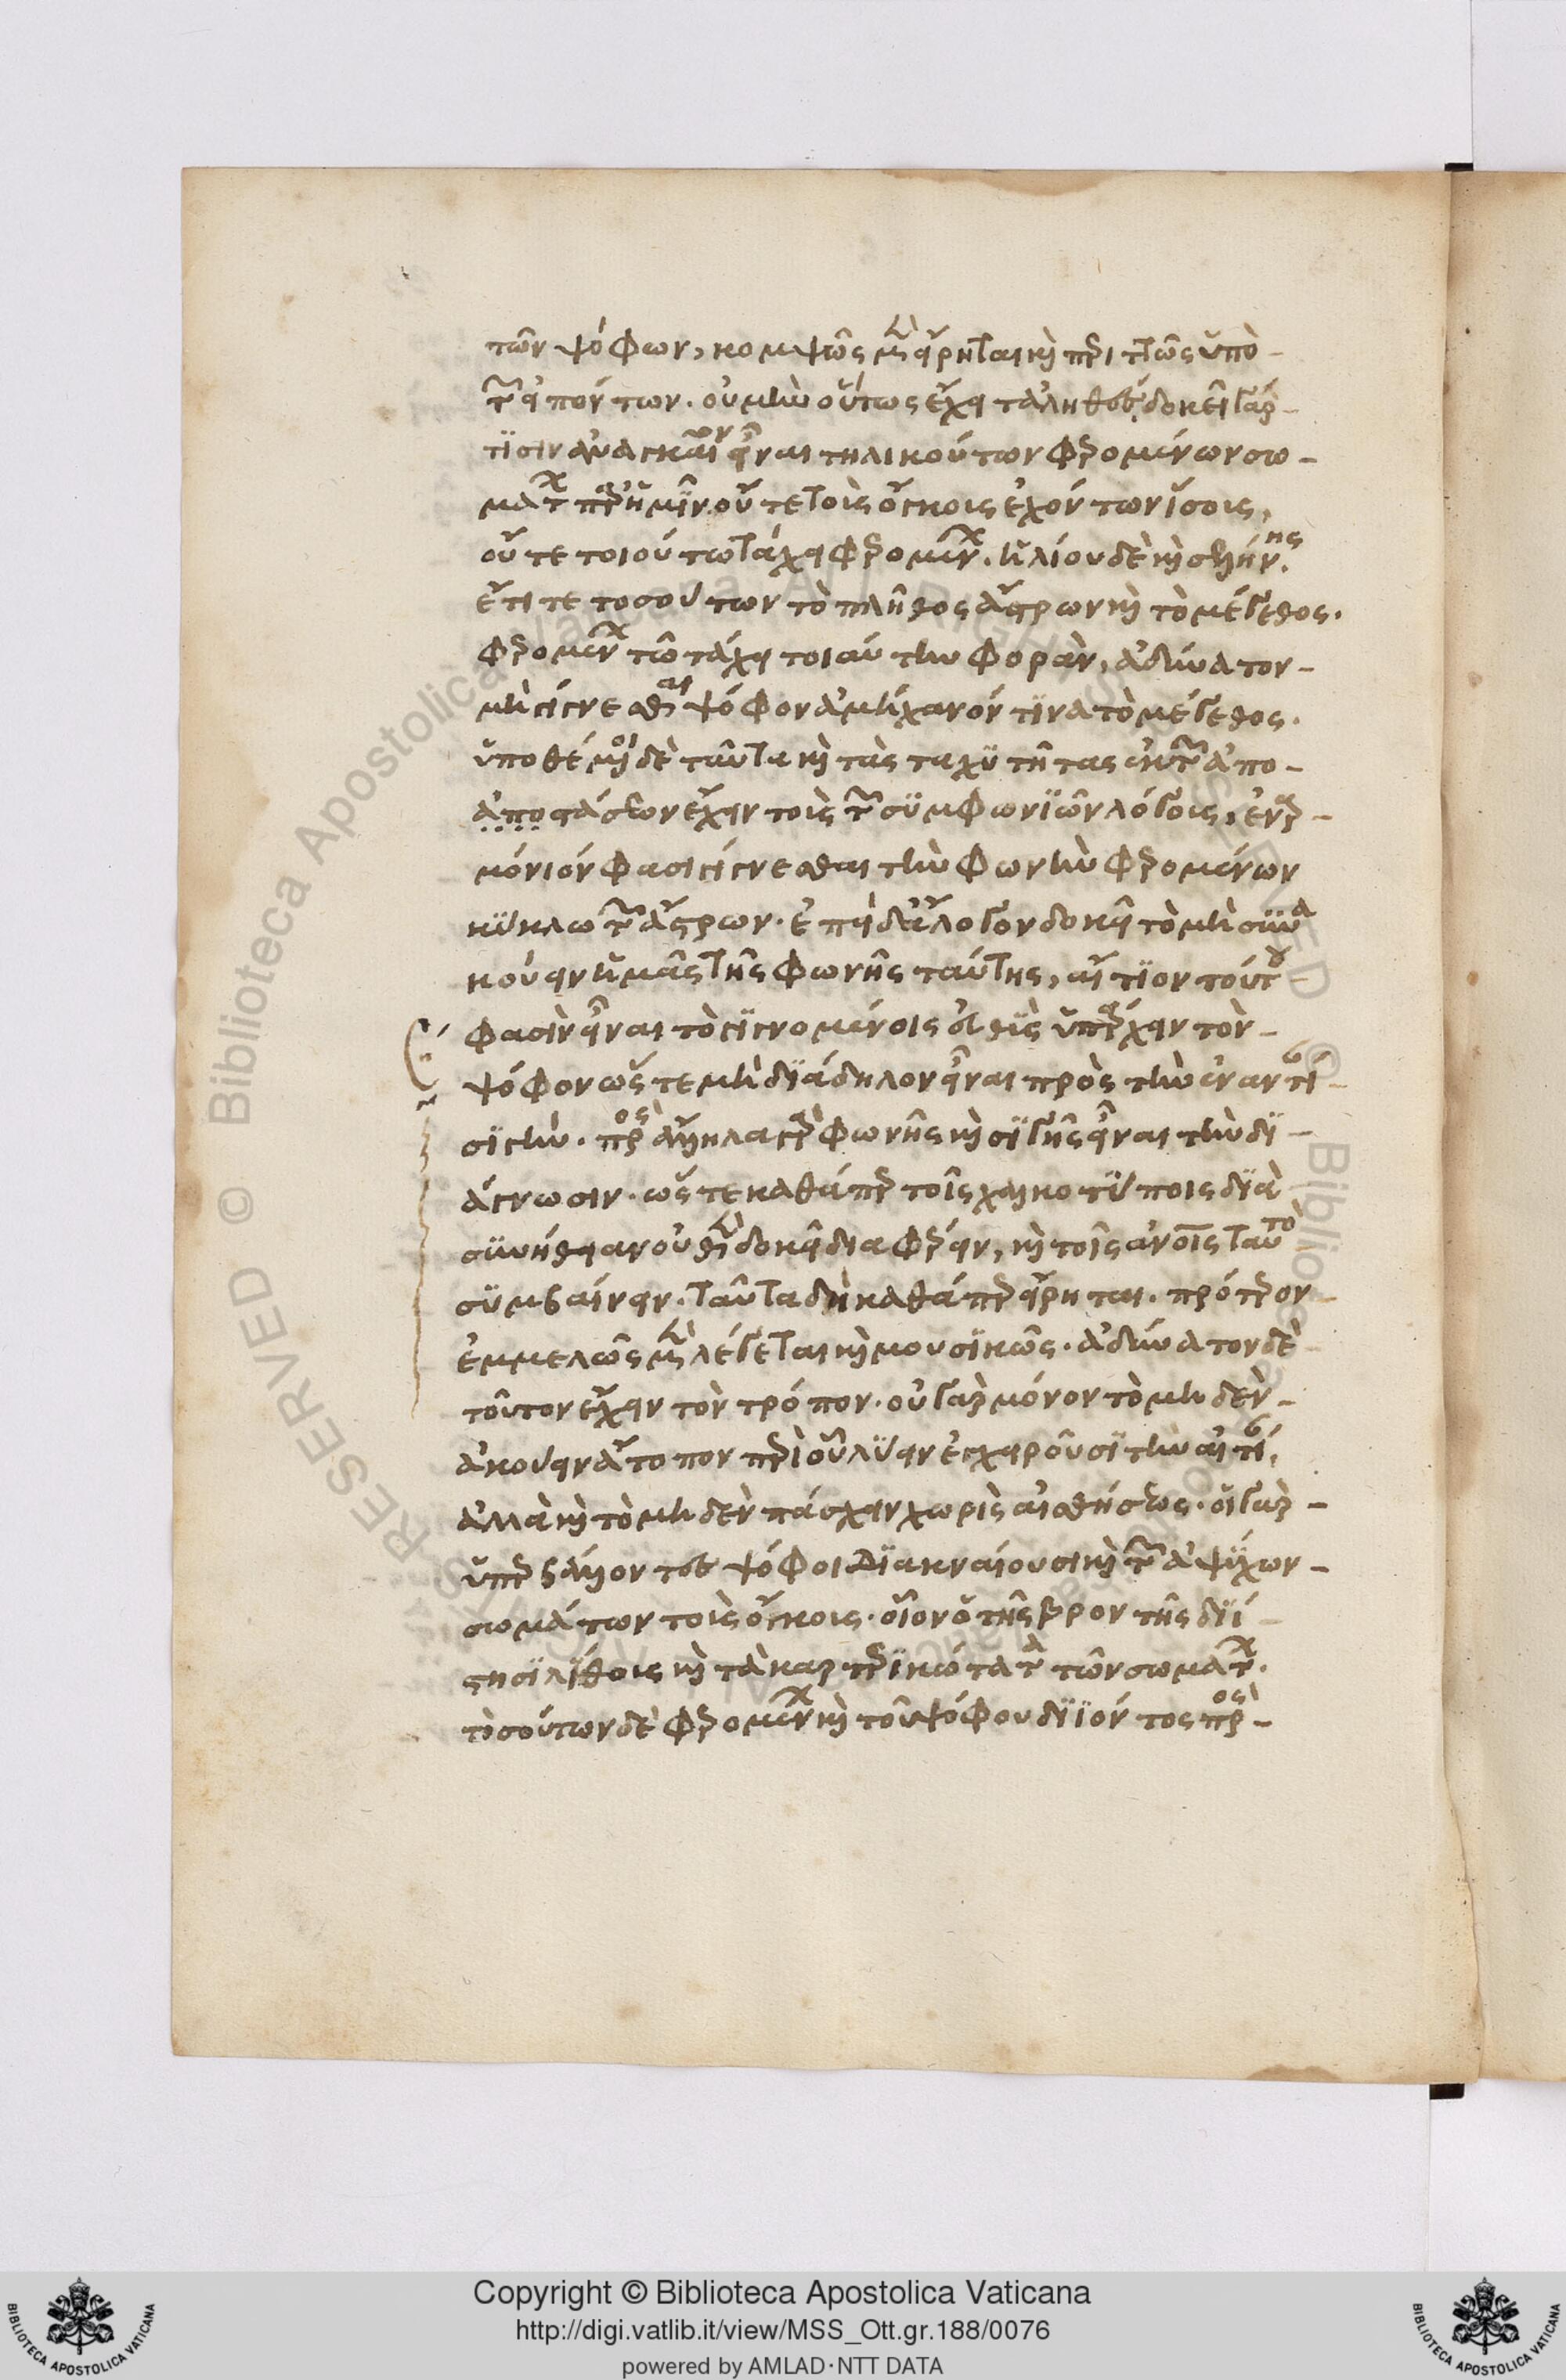 τῶν ψόφων, κομψῶς μὲν εἴρηται καὶ περιττῶς ὑπὸ
τῶν εἰπόντων. οὐ μὴν οὕτως ἔχει τἀληθές, δοκεῖ γάρ
τισιν ἀναγκαῖον εἶναι τηλικούτων φερομένων σω-
μάτων παρ' ἡμῖν οὔτε τοῖς ὄγκοις ἐχόντων ἴσοις,
οὔτε τοιούτω τάχει φερομένων. ἡλίου δὲ καὶ σελήνης.
ἔτι τε τοσούτων τὸ πλῆθος ἄστρων καὶ τὸ μέγεθος.
φερομένων τῶ τάχει τοιαύτην φορὰν, ἀδύνατον
μὴ γίγνεσθαι ψόφον ἀμήχανόν τινα τὸ μέγεθος.
ὑποθέμενοι δὲ ταῦτα καὶ τὰς ταχυτῆτας ἐκ τῶν ἀπο-
αποστάσεων ἔχειν τοὺς τῶν συμφωνιῶν λόγους, ἐναρ-
μόνιόν φασι γίγνεσθαι τὴν φωνὴν φερομένων
κύκλω τῶν ἄστρων. ἐπεὶ δ' ἄλογον δοκεῖ τὸ μὴ συνα-
κούειν ἡμᾶς τῆς φωνῆς ταύτης, αἴτιον τούτου
φασὶν εἶναι τὸ γιγνομένοις εὐθὺς ὑπάρχειν τὸν
ψόφον ὥστε μὴ διάδηλον εἶναι πρὸς τὴν ἐναντίαν
σιγήν. πρὸς ἄλληλα γὰρ φωνῆς καὶ σιγῆς εἶναι τὴν δι-
άγνωσιν. ὥστε καθάπερ τοῖς χαλκοτύποις διὰ
συνήθειαν οὐθὲν δοκεῖ διαφέρειν, καὶ τοῖς ἀνοις ταὐτὸ
συμβαίνειν. ταῦτα δὴ καθάπερ εἴρηται. πρότερον
ἐμμελῶς μὲν λέγεται καὶ μουσικῶς. ἀδύνατον δὲ
τοῦτον ἔχειν τὸν τρόπον. οὐ γὰρ μόνον τὸ μηδὲν
ἀκούειν ἄτοπον περὶ οὗ λύειν ἐγχειροῦσι τὴν αἰτίαν,
ἀλλὰ καὶ τὸ μηδὲν πάσχειν χωρὶς αἰσθήσεως. οἱ γὰρ
ὑπερβάλλοντες ψόφοι διακναίουσι καὶ τῶν ἀψύχων
σωμάτων τοὺς ὄγκους. οἷον ὁ τῆς βροντῆς διί-
στησι λίθους καὶ τὰ καρτερικώτατα τῶν σωμάτων.
τοσούτων δὲ φερομένων καὶ τοῦ ψόφου διιόντος πρὸς